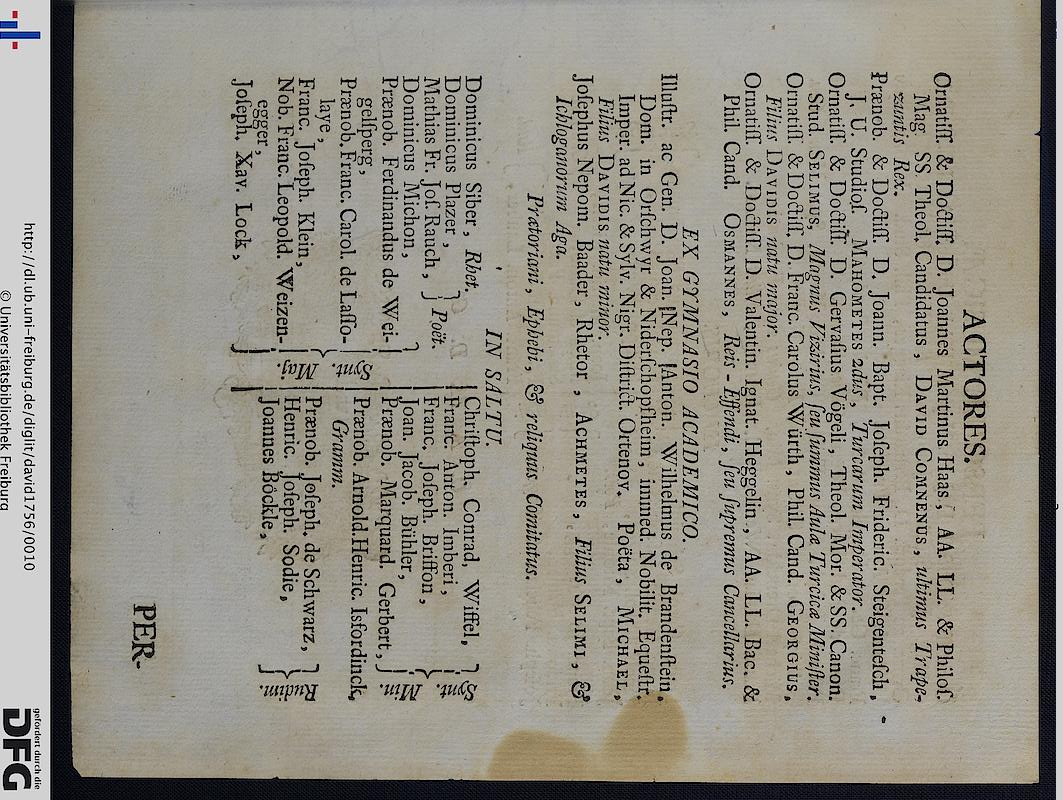 ACTORES.
Ornatiſſ. & Doctiſſ. D. Joannes Martinus Haas, AA. LL. & Philoſ.
Mag SS Theol. Candidatus, DAVID COMNENUS, ultimus Trape-
zuntis Rex.
Prænob. & Doctiſſ. D. Joann. Bapt. Joſeph. Frideric. Steigenteſch,
J. U. Studioſ. MAHOMETES 2dus, Turcarum Imperator.
Ornatiſſ. & Doctiſſ. D. Gervaſius Vögeli, Theol. Mor. & SS. Canon.
Stud. SELIMUS, Magnus Vizirius, ſeu ſummus Aulæ Turcicæ Miniſter.
Ornatiſſ. & Doctiſſ. D. Franc. Carolus Würth, Phil. Cand. GEORGIUS,
Filius DAVIDIS natu major.
Ornatiſſ. & Doctiſſ. D. Valentin. Ignat. Heggelin, AA. LL. Bac. &
Phil. Cand. OSMANNES, Reis-Effendi, ſeu ſupremus Cancellarius.
EX GYMNASIO ACADEMICO.
Illuſtr. ac Gen. D. Joan. Nep. Anton. Wilhelmus de Brandenſtein,
Dom. in Orſchwyr & Niderſchopfheim, immed. Nobilit. Equeſtr.
Imper. ad Nic. & Sylv. Nigr. Diſtrict. Ortenov. Poëta, MICHAEL,
Filius DAVIDIS natu minor.
Joſephus Nepom. Baader, Rhetor, ACHMETES, Filius SELIMI, &
Ichloganorum Aga.
Prætoriani, Ephebi, & reliquus Comitatus.
IN SALTU.
Dominicus Siber, Rhet.
Dominicus Plazer,
Mathias Fr. Joſ. Rauch, } Poët.
Dominicus Michon,
Prænob. Ferdinandus de Wei-
gelſperg,
Prænob. Franc. Carol. de Laſſo-
laye,
Franc. Joſeph. Klein,
Nob. Franc. Leopold. Weizen-
egger,
Joſeph. Xav. Lock,
Synt.
Maj.
Chriſtoph. Conrad. Wiſſel,
Franc. Anton. Imberi,
Franc. Joſeph. Briffon,
Joan. Jacob. Bühler,
Prænob. Marquard. Gerbert,
Synt.
Min.
Prænob. Arnold. Henric. Isfordinck,
Gramm.
Prænob. Joſeph. de Schwarz,
Henric. Joſeph. Sodie,
Joannes Böckle,
Rudim.
PER-
http://dl.ub.uni-freiburg.de/diglit/david1756/0010
© Universitätsbibliothek Freiburg
gefördert durch die
DFG